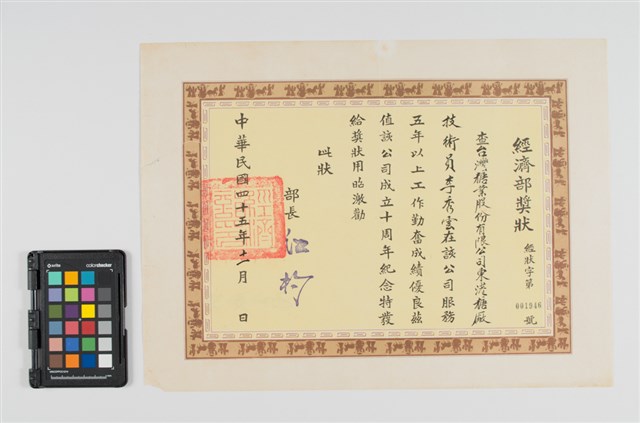 經濟部獎狀
經狀字第001946號
查台灣糖業股份有限公司東港糖廠
技術員李秀雲在該公司服務
五年以上工作勤奮成績優良茲
值該公司成立十周年紀念特發
給獎狀用昭激勵
此狀
部長 江杓
中華民國四十五年十二月 日
colorchecker